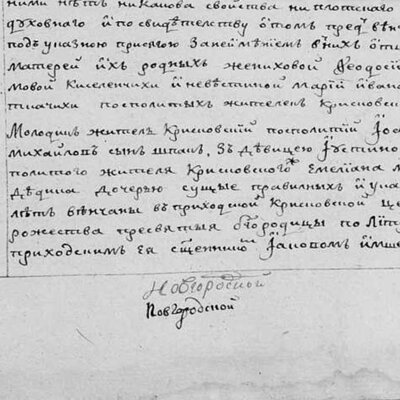 ними нѣтъ никакова свойства ни плотскаго
духовнаго и по свидѣтелству о томъ пред вѣнч
подъ указною присягою занеимѣнiемъ в них отц
матерей ихъ родных жениховой Ѳеодосiи
мовой Киселенихи и невѣстиной марiи ивано
ткачихи посполитыхъ жителей Крисновск
Молодикъ жителъ Крисновскiй посполитiй Iоа
михайловъ сынъ шпакъ, зъ дѣвицею Iустино
политого жителя Крисновского Емелiана
дѣдика дочерью сущые правилных и ука
лѣтъ вѣнчаны въ приходской Крисновской це
рожества пресвятыя бгородицы по Лiт
приходскимъ ея сщенникомъ Iаковомъ Имше
Новгородской
Новгородской